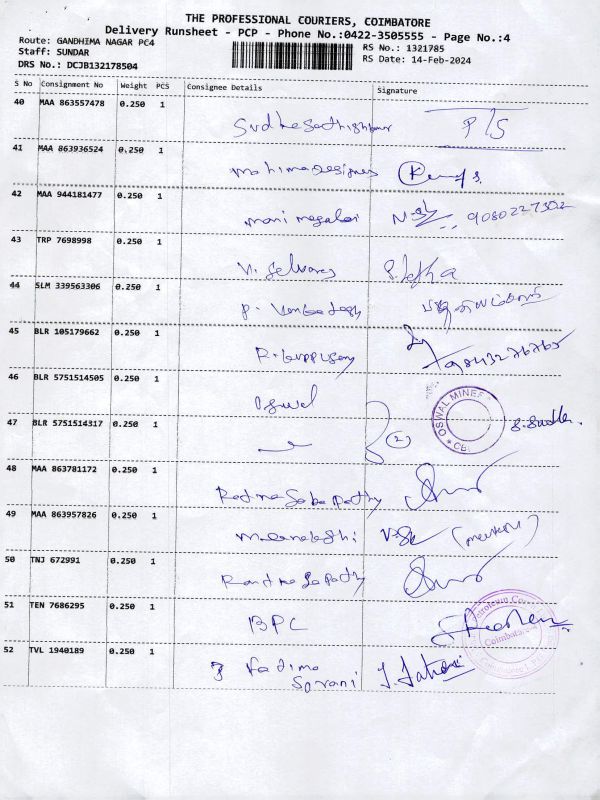 THE PROFESSIONAL COURIERS, COIMBATORE
Delivery Runsheet - PCP - Phone No.:0422-3505555 - Page No.:4
Route: GANDHIMA NAGAR PC4
RS No.: 1321785
Staff: SUNDAR
RS Date: 14-Feb-2024
DRS No.: DCJB132178504
S No Consignment No Weight PCS Consignee Details Signature
40 MAA 863557478 0.250 1
P/S
41 MAA 863936524 0.250 1
Mahima Designes
42 MAA 944181477 0.250 1
mani megalai 9080227302
43 TRP 7698998 0.250 1
V. Selvaraj
44 SLM 339563306 0.250 1
P. Venkatesh
45 BLR 105179662 0.250 1
R. Karppusamy 9843276765
46 BLR 5751514505 0.250 1
Oswal
OSWAL MINE
47 BLR 5751514317 0.250 1
(2)
48 MAA 863781172 0.250 1
Ratna Sabapathy
49 MAA 863957826 0.250 1
Meenakshi
50 TNJ 672991 0.250 1
51 TEN 7686295 0.250 1
BPC
Coimbatore
52 TVL 1940189 0.250 1
J Fatima